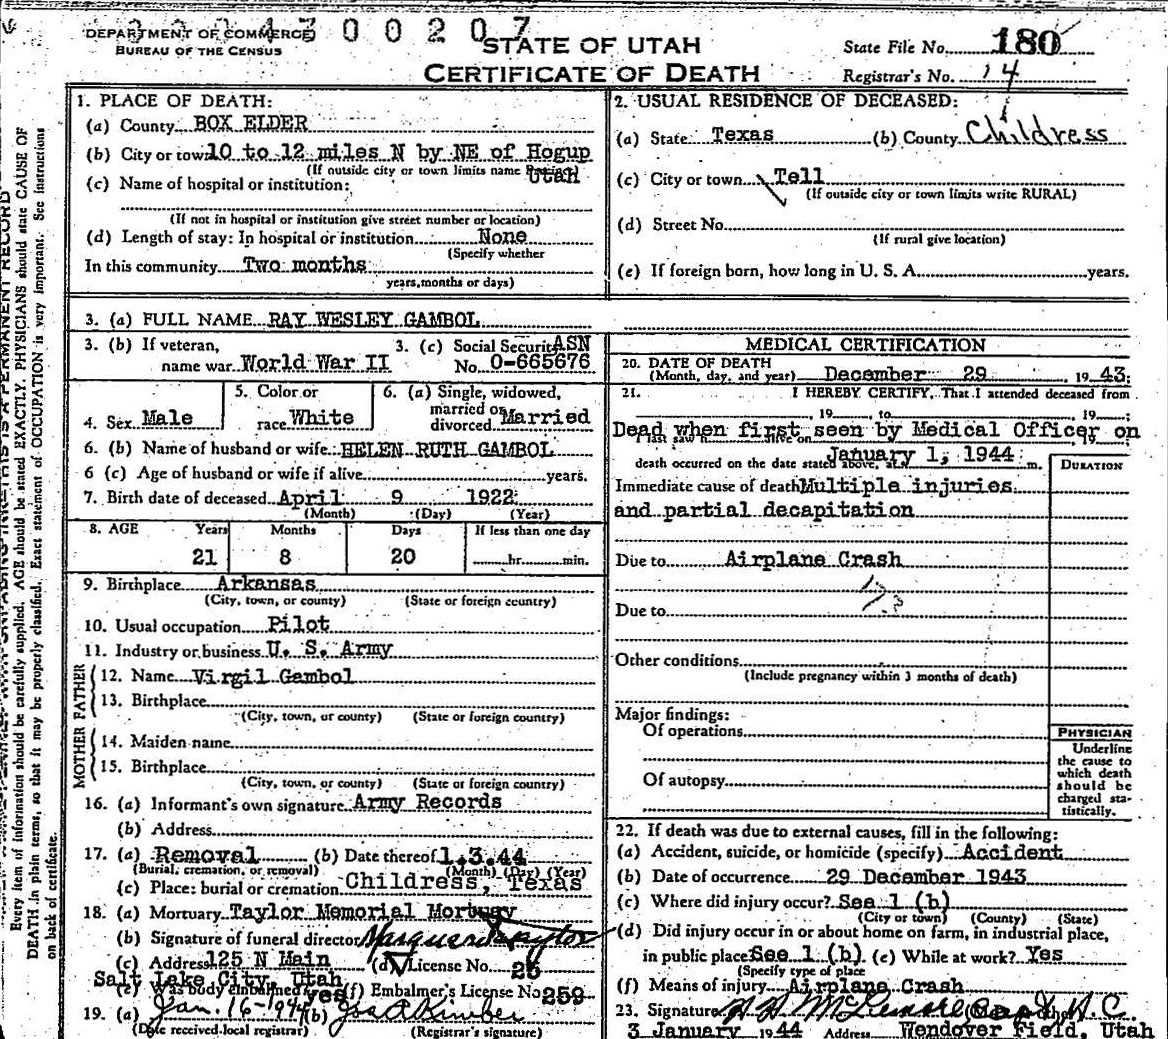 0 0 4 3 0 0 2 0 7
DEPARTMENT OF COMMERCE
BUREAU OF THE CENSUS
STATE OF UTAH
CERTIFICATE OF DEATH
State File No. 180
Registrar's No. 14
1. PLACE OF DEATH:
(a) County BOX ELDER
(b) City or town 10 to 12 miles N by NE of Hogup
(If outside city or town limits name
Utah
(c) Name of hospital or institution:
(If not in hospital or institution give street number or location)
(d) Length of stay: In hospital or institution None
(Specify whether
In this community Two months
years, months or days)
2. USUAL RESIDENCE OF DECEASED:
(a) State Texas (b) County Childress
(c) City or town Tell
(If outside city or town limits write RURAL)
(d) Street No.
(If rural give location)
(e) If foreign born, how long in U. S. A. years.
3. (a) FULL NAME RAY WESLEY GAMBOL
3. (b) If veteran, 3. (c) Social Security ASN
name war World War II No. O-665676
4. Sex Male
5. Color or
race White
6. (a) Single, widowed,
married or
divorced Married
6. (b) Name of husband or wife HELEN RUTH GAMBOL
6 (c) Age of husband or wife if alive years.
7. Birth date of deceased April 9 1922
(Month) (Day) (Year)
8. AGE Years Months Days If less than one day
21 8 20 hr. min.
9. Birthplace Arkansas
(City, town, or county) (State or foreign country)
10. Usual occupation Pilot
11. Industry or business U. S. Army
FATHER
12. Name Virgil Gambol
13. Birthplace
(City, town, or county) (State or foreign country)
MOTHER
14. Maiden name
15. Birthplace
(City, town, or county) (State or foreign country)
16. (a) Informant's own signature Army Records
(b) Address
17. (a) Removal (b) Date thereof 1.3.44
(Burial, cremation, or removal) (Month) (Day) (Year)
(c) Place: burial or cremation Childress, Texas
18. (a) Mortuary Taylor Memorial Mortuary
(b) Signature of funeral director Taylor
(c) Address 125 N Main (d) License No. 25
Salt Lake City Utah
(e) Was body embalmed yes (f) Embalmer's License No 259
19. (a) Jan. 16-1944 (b)
(Date received local registrar) (Registrar's signature)
MEDICAL CERTIFICATION
20. DATE OF DEATH
(Month, day, and year) December 29 1943
21. I HEREBY CERTIFY, That I attended deceased from
19 to 19
Dead when first seen by Medical Officer on
January 1, 1944
death occurred on the date stated above, at m.
DURATION
Immediate cause of death Multiple injuries
and partial decapitation
Due to Airplane Crash
Due to
Other conditions
(Include pregnancy within 3 months of death)
Major findings:
Of operations
Of autopsy
PHYSICIAN
Underline
the cause to
which death
should be
charged sta-
tistically.
22. If death was due to external causes, fill in the following:
(a) Accident, suicide, or homicide (specify) Accident
(b) Date of occurrence 29 December 1943
(c) Where did injury occur? See 1 (b)
(City or town) (County) (State)
(d) Did injury occur in or about home on farm, in industrial place,
in public place See 1 (b) (e) While at work? Yes
(Specify type of place
(f) Means of injury Airplane Crash
23. Signature
3 January 1944 Address Wendover Field, Utah
Every item of information should be carefully supplied. AGE should be stated EXACTLY. PHYSICIANS should state CAUSE OF
DEATH in plain terms, so that it may be properly classified. Exact statement of OCCUPATION is very important. See instructions
on back of certificate.